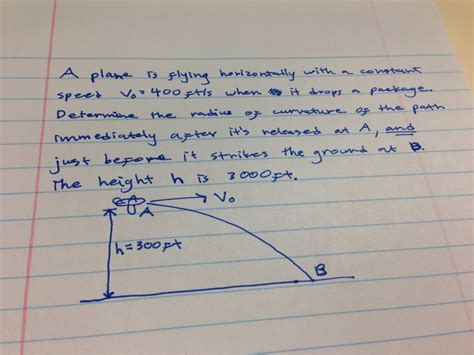 A plane is flying horizontally with a constant
speed V₀=400ft/s when it drops a package.
Determine the radius of curvature of the path
immediately after it's released at A, and
just before it strikes the ground at B.
The height h is 3000ft.
A V₀
h=300ft
B